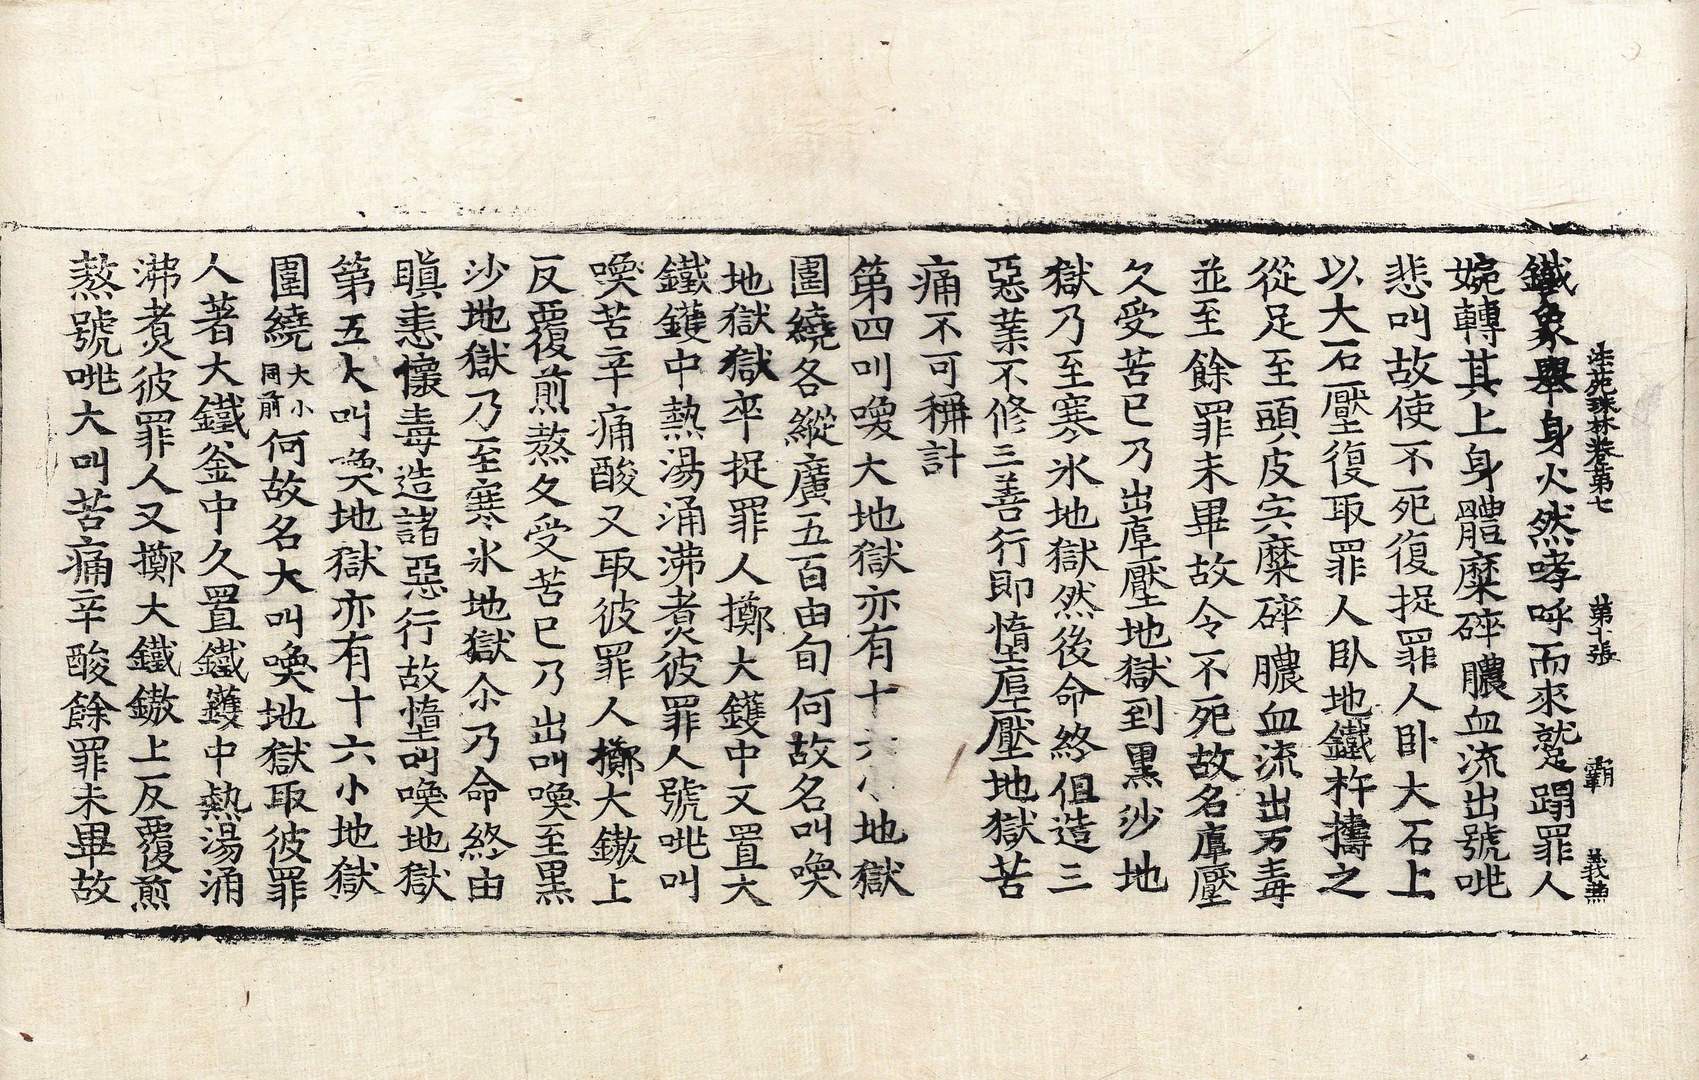 法苑珠林卷第七 第十張 霸 義燕
鐵象舉身火然哮呼而來蹴蹋罪人
婉轉其上身體糜碎膿血流出號咷
悲叫故使不死復捉罪人卧大石上
以大石壓復取罪人卧地鐵杵擣之
從足至頭皮宍糜碎膿血流出万毒
並至餘罪未畢故令不死故名𡌥壓
久受苦已乃出𡌥壓地獄到黑沙地
獄乃至寒氷地獄然後命終但造三
惡業不修三善行即墮𡌥壓地獄苦
痛不可稱計
第四叫喚大地獄亦有十六小地獄
圍繞各縱廣五百由旬何故名叫喚
地獄獄卒捉罪人擲大鑊中又置大
鐵鑊中熱湯涌沸煮彼罪人號咷叫
喚苦辛痛酸又取彼罪人擲大鏾上
反覆煎熬久受苦已乃出叫喚至黑
沙地獄乃至寒氷地獄尒乃命終由
瞋恚懷毒造諸惡行故墮叫喚地獄
第五大叫喚地獄亦有十六小地獄
圍繞大小同前何故名大叫喚地獄取彼罪
人著大鐵釜中久置鐵鑊中熱湯涌
沸煮彼罪人又擲大鐵鏾上反覆煎
熬號咷大叫苦痛辛酸餘罪未畢故